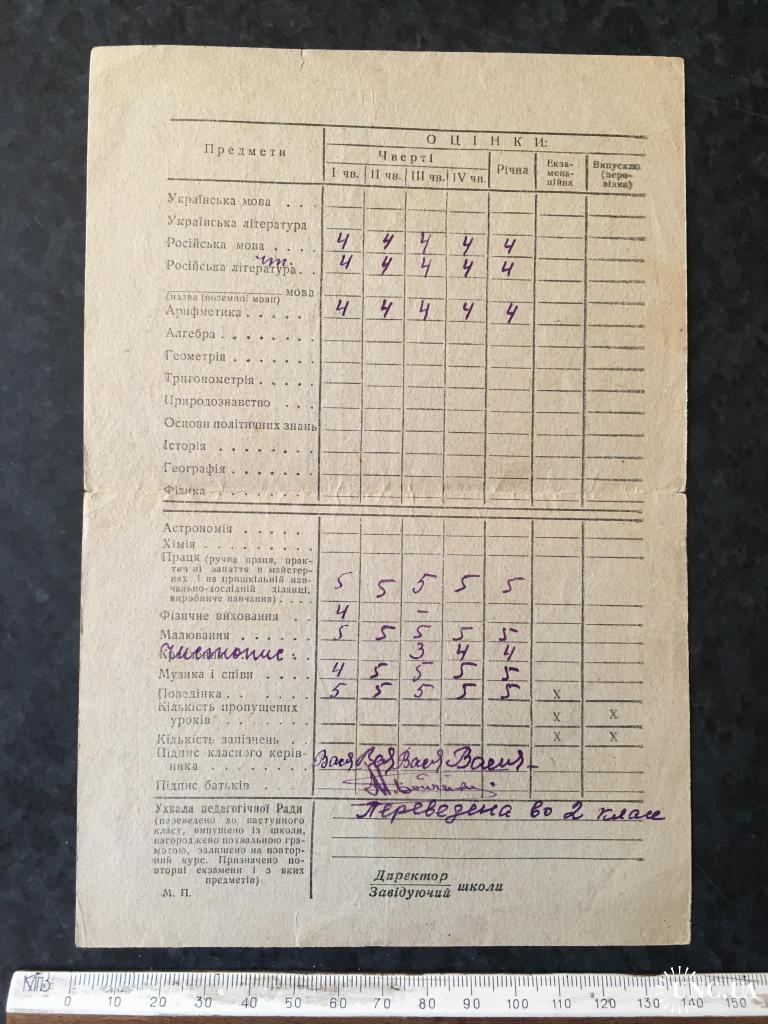 Предмети
О Ц І Н К И:
Чверті
І чв. ІІ чв. ІІІ чв. ІV чв. Річна Екза-мена-ційна Випускна (пере-відна)
Українська мова . . .
Українська література
Російська мова . . . . 4 4 4 4 4
чт.
Російська література . . 4 4 4 4 4
мова
(назва іноземної мови)
Арифметика . . . . . 4 4 4 4 4
Алгебра . . . . . . .
Геометрія . . . . . .
Тригонометрія . . . . .
Природознавство . . .
Основи політичних знань
Історія . . . . . . .
Географія . . . . . .
Фізика . . . . . . .
Астрономія . . . . .
Хімія . . . . . . . .
Праця (ручна праця, прак-
тичні заняття в майстер-
нях і на пришкільній нав-
чально-дослідній ділянці,
виробниче навчання) . . . . 5 5 5 5 5
Фізичне виховання . . 4 –
Малювання . . . . . . 5 5 5 5 5
Чистопис . 3 4 4
Музика і співи . . . . 4 5 5 5 5
Поведінка . . . . . . 5 5 5 5 5 X
Кількість пропущених
уроків . . . . . . . X X
Кількість запізнень . . X X
Підпис класного керів-
ника . . . . . . . .
Підпис батьків . . . .
Ухвала педагогічної Ради
(переведено до наступного
класу, випущено із школи,
нагороджено похвальною гра-
мотою, залишено на повтор-
ний курс. Призначено по-
вторні екзамени і з яких
предметів)
М. П.
Переведена во 2 класс
Директор
Завідуючий школи
0 10 20 30 40 50 60 70 80 90 100 110 120 130 140 150
UNC.UA